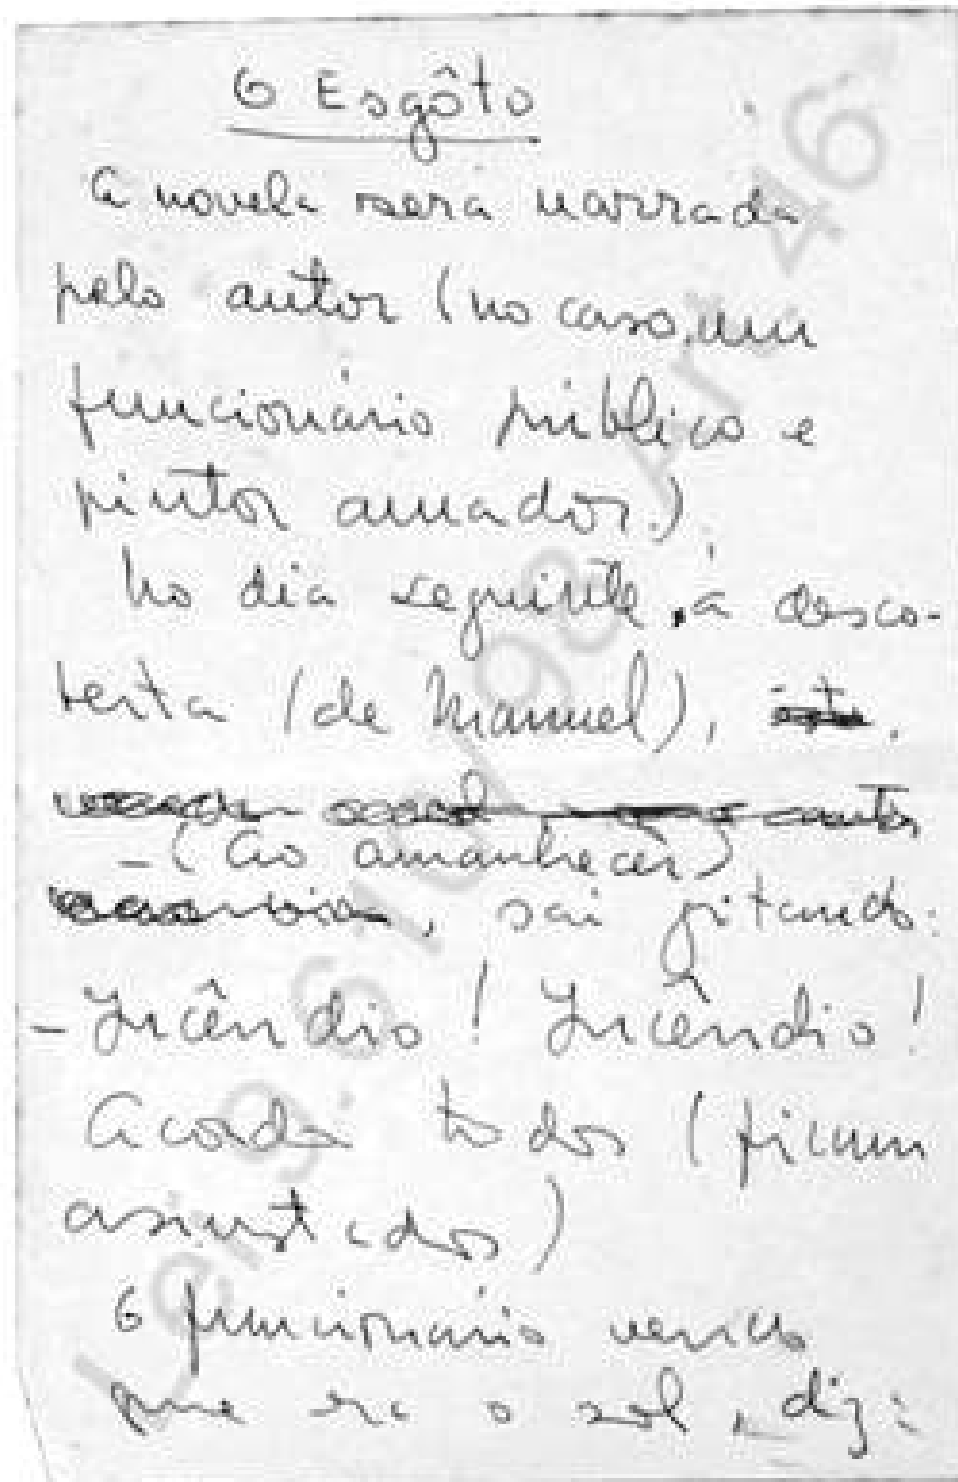 O Esgôto
A novela será narrada
pelo autor (no caso, um
funcionário público e
pintor amador).
No dia seguinte, à desco-
berta (de Manuel),
- (Ao amanhecer)
, sai gritando:
- Incêndio! Incêndio!
Acorda todos (ficam
assustados)
O funcionário vendo
que era o sol, diz:
Lei 9.610/98 Art 46